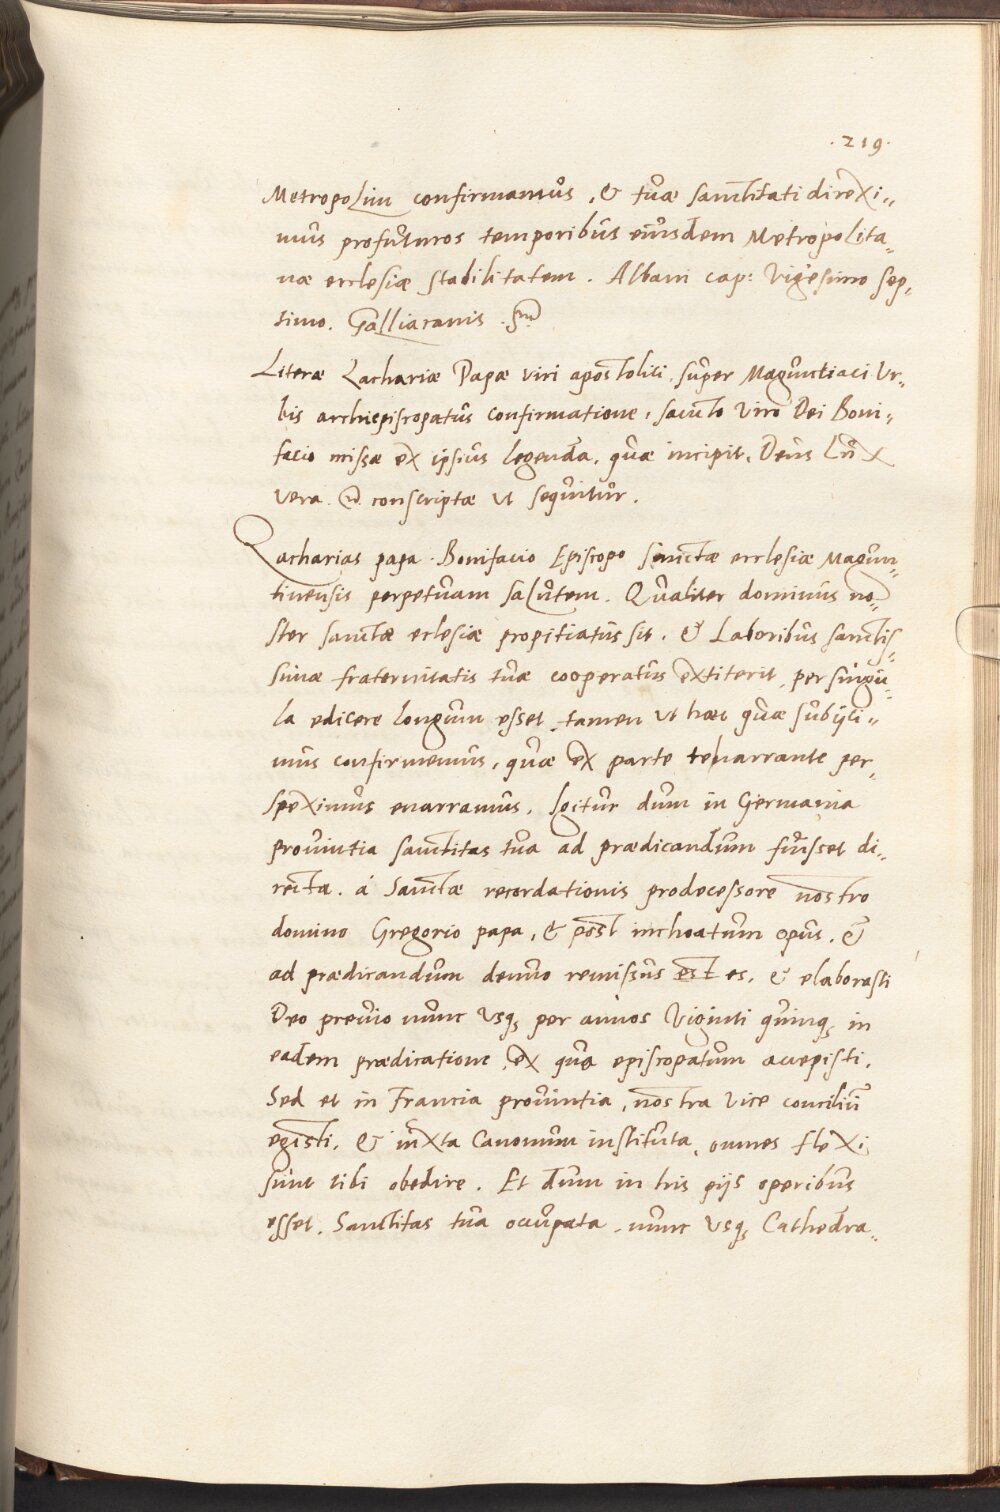 .219.
Metropolim confirmamus, & tuæ sanctitati direxi„
mus profuturos temporibus eiusdem Metropolita„
næ ecclesiæ stabilitatem. Albani cap: Vigesimo sep„
timo. Galliacanis.
Literæ Zachariæ Papæ viri apostolici, super Maguntiaci Ur„
bis archiepiscopatus confirmatione, sancto viro Dei Boni„
facio missæ ex ipsius legenda, quæ incipit, Deus Lux
vera. conscriptæ ut sequitur.
Zacharias papa. Bonifacio Episcopo sanctæ ecclesiæ Magun„
tinensis perpetuam salutem. Qualiter dominus no„
ster sanctæ eclesiæ propitiatus sit. & Laboribus sanctis„
simæ fraternitatis tuæ cooperatus extiterit, per singu„
la edicere longum esset, tamen ut hæc quæ subijci„
mus confirmemus, quæ ex parte te narrante per„
speximus enarramus. Igitur dum in Germania
provintia sanctitas tua ad prædicandum fuisset di„
recta. á Sanctæ recordationis prodecessore nostro
domino Gregorio papa, & post inchoatum opus, &
ad prædicandum denuo remissus est es, & elaborasti
Deo previo nunc usq, per annos viginti quinq, in
eadem prædicatione, ex quo episcopatum accepisti.
Sed et in Francia provintia, nostra vice conciliū
egisti, & iuxta Canonum instituta, omnes flexi
sunt tibi obedire. Et dum in his pijs operibus
esset, Sanctitas tua occupata, nunc usq, Cathedra„